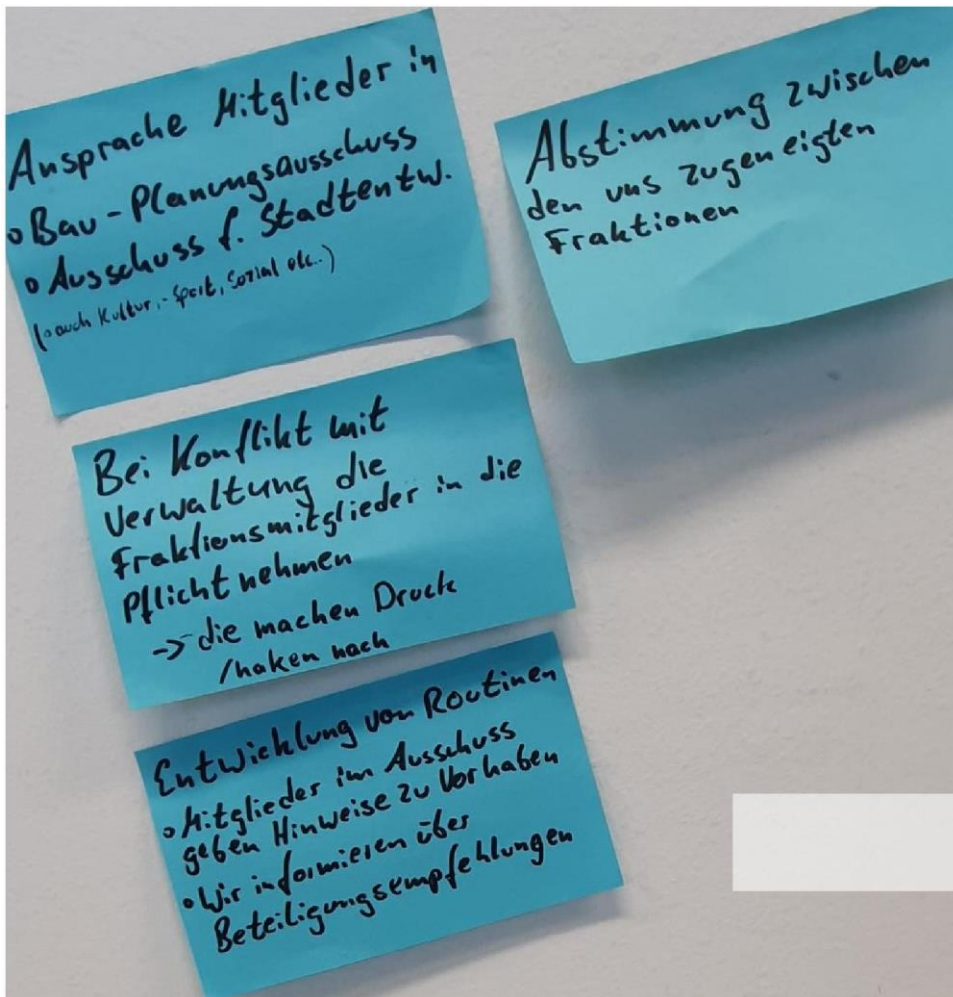 Ansprache Mitglieder in
o Bau-Planungsausschuss
o Ausschuss f. Stadtentw.
(o auch Kultur,- Sport, Sozial etc..)
Abstimmung zwischen
den uns zugeneigten
Fraktionen
Bei Konflikt mit
Verwaltung die
Fraktionsmitglieder in die
Pflicht nehmen
-> die machen Druck
/haken nach
Entwicklung von Routinen
o Mitglieder im Ausschuss
geben Hinweise zu Vorhaben
o Wir informieren über
Beteiligungsempfehlungen